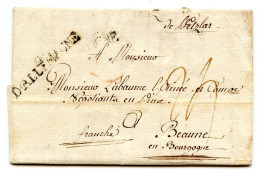 de Wetzlar
D'ALLEMAGNE
A Monsieur
Monsieur Labaume l'Ainée
Négotiants en Vins
franche
Beaune
en Bourgogne